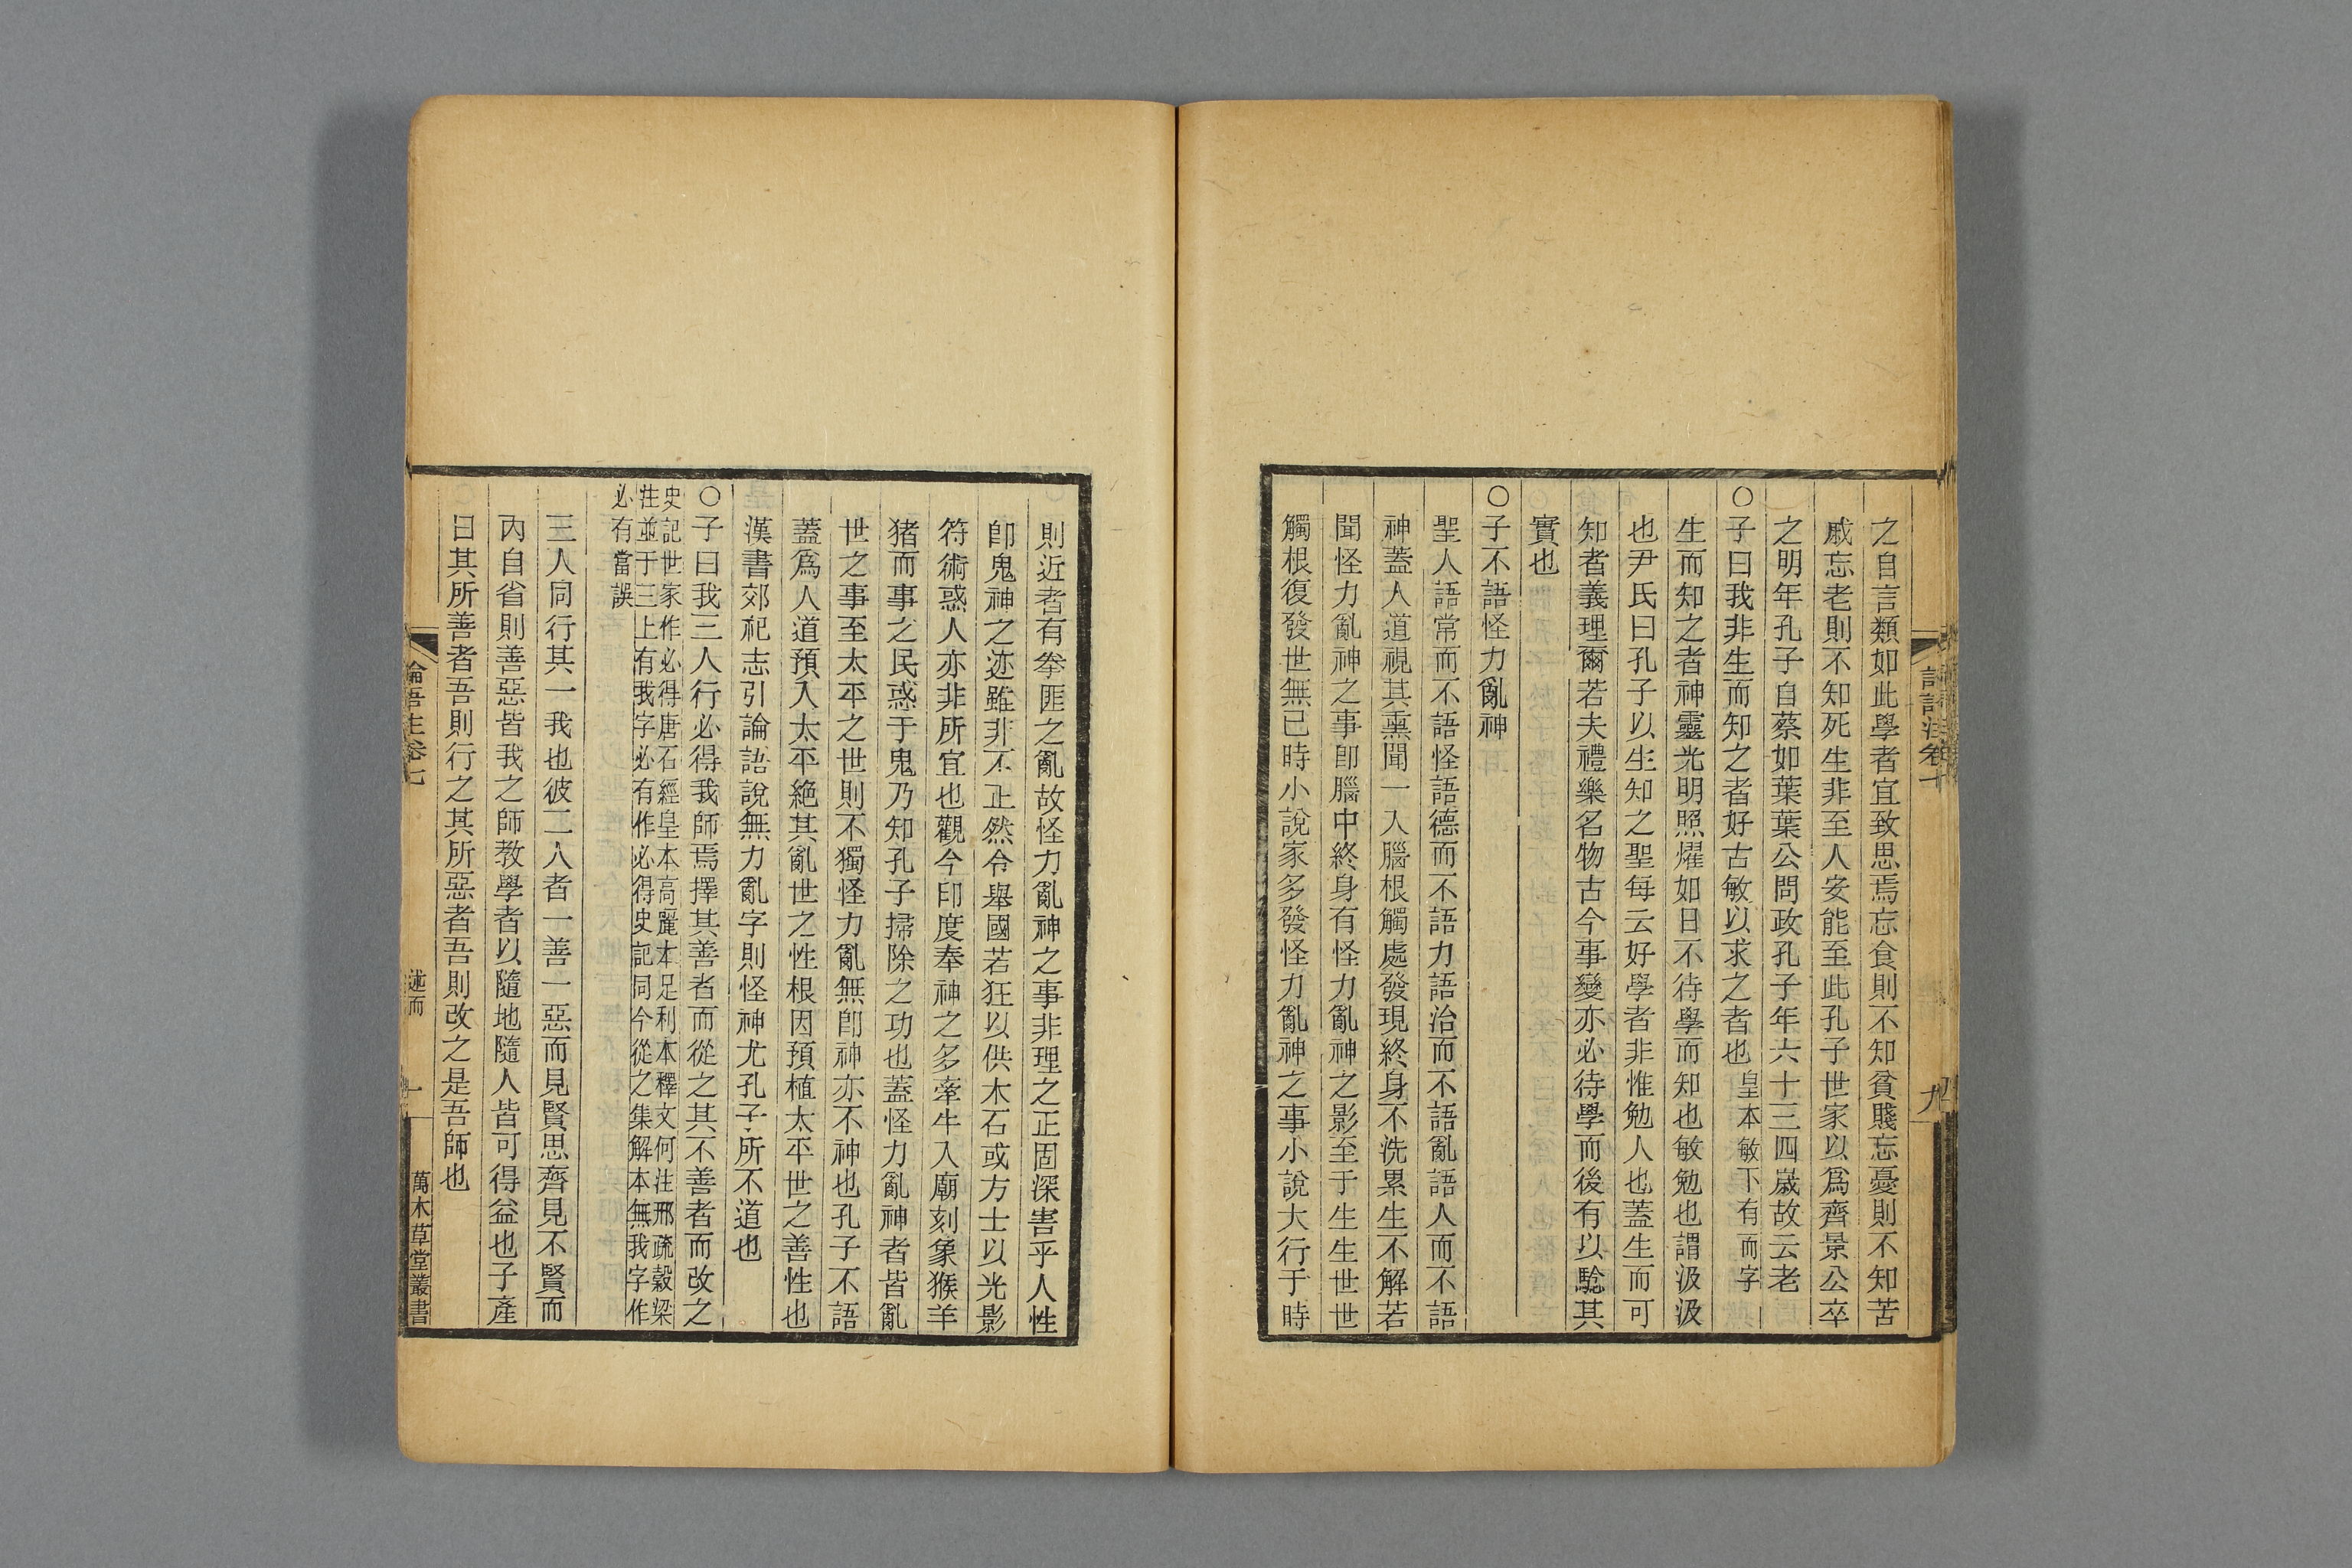 之自言類如此學者宜致思焉忘食則不知貧賤忘憂則不知苦
戚忘老則不知死生非至人安能至此孔子世家以爲齊景公卒
之明年孔子自蔡如葉葉公問政孔子年六十三四歲故云老
○子曰我非生而知之者好古敏以求之者也皇本敏下有而字
生而知之者神靈光明照燿如日不待學而知也敏勉也謂汲汲
也尹氏曰孔子以生知之聖每云好學者非惟勉人也蓋生而可
知者義理爾若夫禮樂名物古今事變亦必待學而後有以驗其
實也
○子不語怪力亂神
聖人語常而不語怪語德而不語力語治而不語亂語人而不語
神蓋人道視其熏聞一入腦根觸處發現終身不洗累生不解若
聞怪力亂神之事卽腦中終身有怪力亂神之影至于生生世世
觸根復發世無已時小說家多發怪力亂神之事小說大行于時
則近者有拳匪之亂故怪力亂神之事非理之正固深害乎人性
卽鬼神之迹雖非不正然令舉國若狂以供木石或方士以光影
符術惑人亦非所宜也觀今印度奉神之多牽牛入廟刻象猴羊
猪而事之民惑于鬼乃知孔子掃除之功也蓋怪力亂神者皆亂
世之事至太平之世則不獨怪力亂無卽神亦不神也孔子不語
蓋爲人道預入太平絕其亂世之性根因預植太平世之善性也
漢書郊祀志引論語說無力亂字則怪神尤孔子所不道也
○子曰我三人行必得我師焉擇其善者而從之其不善者而改之
史記世家作必得唐石經皇本高麗本足利本釋文何注邢疏穀梁
注並于三上有我字必有作必得史記同今從之集解本無我字作
必有當誤
三人同行其一我也彼二人者一善一惡而見賢思齊見不賢而
內自省則善惡皆我之師教學者以隨地隨人皆可得益也子產
曰其所善者吾則行之其所惡者吾則改之是吾師也
論語注卷七
述而
萬木草堂叢書